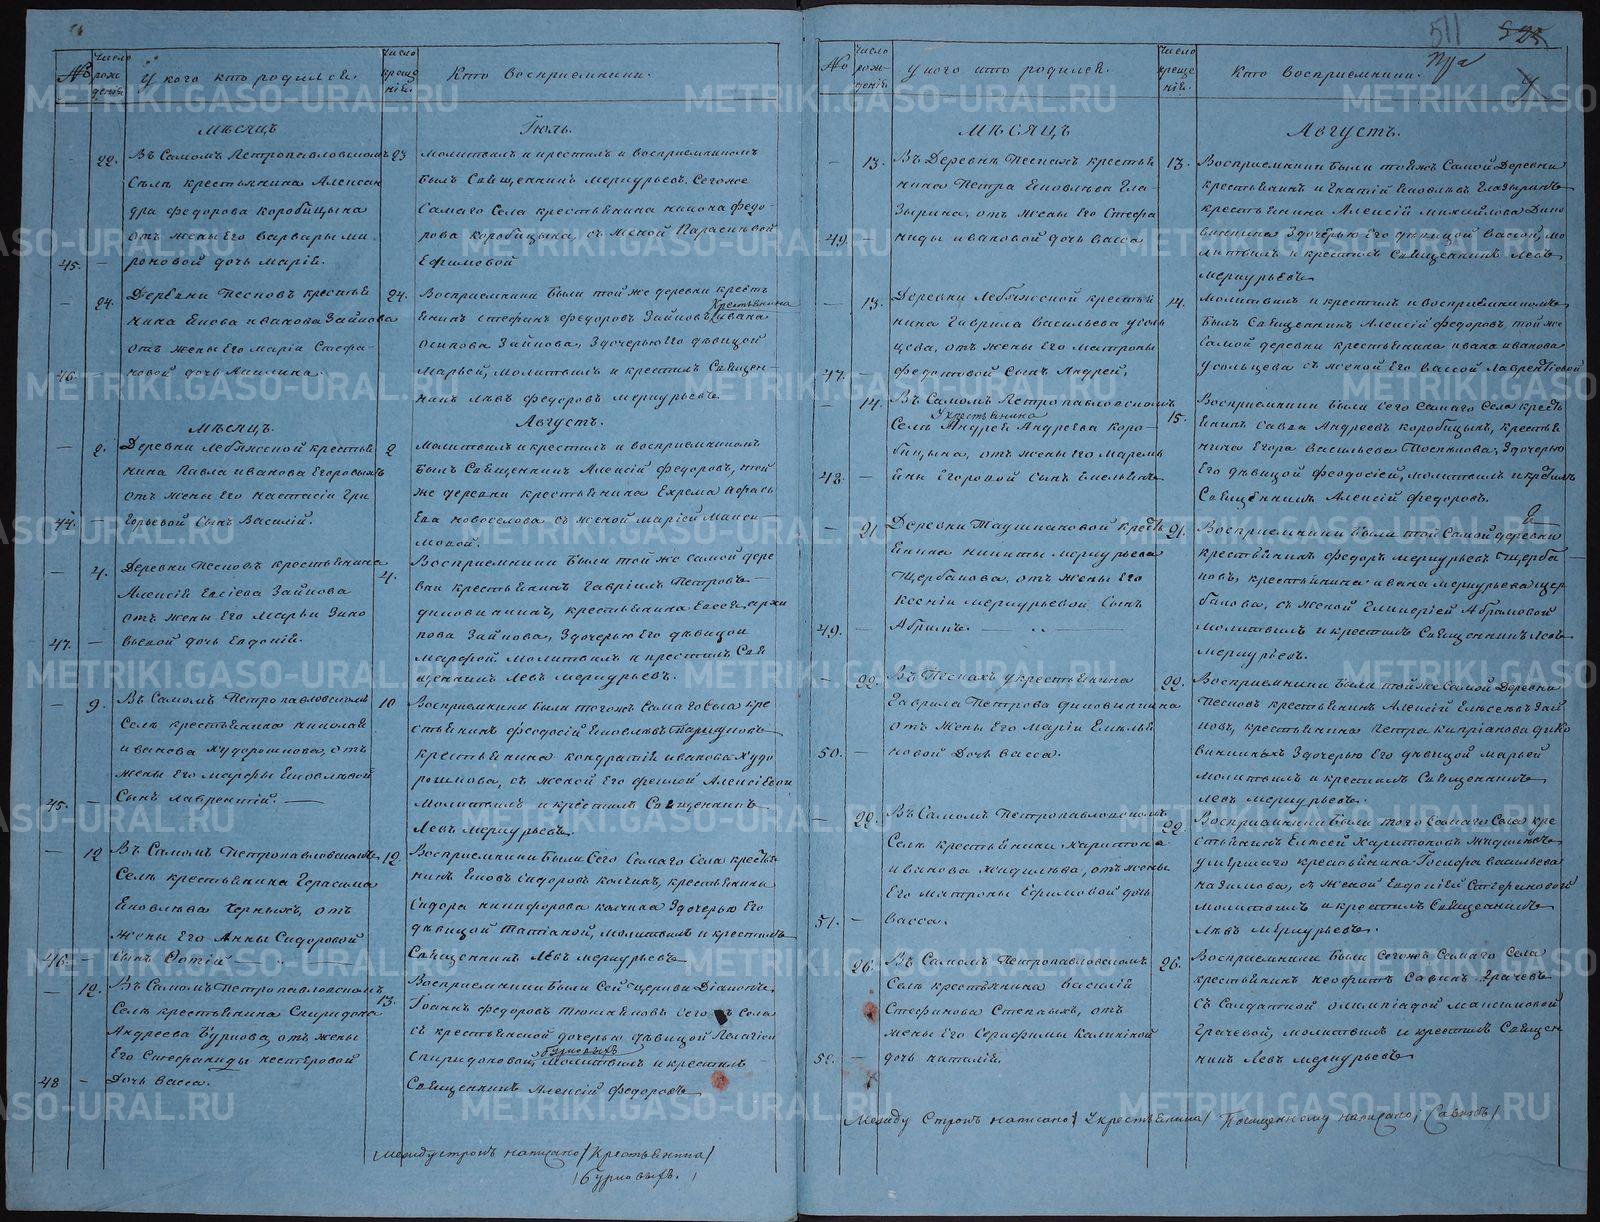 511
№
Число рождения
У кого кто родился.
Число крещения.
Кто восприемники.
Мѣсяцъ Іюль.
22.
Въ Самомъ Петропавловскомъ
Селѣ крестьянина Алексан
дра Федорова Коробицына
отъ жены Его Варвары Ми
45. роновой дочь Марія.
23
Молитвилъ и крестилъ и восприемникомъ
былъ Священникъ Меркурьевъ. Сегоже
Самаго Села крестьянина федо-
рова Коробицына, съ женой Параскивой
Ефимовой
24.
Деревни Песковъ крестья
нина Якова Иванова Зайкова
отъ жены Его Маріи Стефа-
46. новой дочь Акилина.
24.
Восприемники были той же деревни кресть
янинъ Стефанъ Федоровъ Зайковъ Крестьянина Ивана
Осипова Зайкова, Здочерью Его дѣвицой
Марьей, Молитвилъ и крестилъ Священ-
никъ Левъ Федоровъ Меркурьевъ.
Мѣсяцъ. Августъ.
2.
Деревни Лебяжской крестья
нина Павла Иванова Егоровыхъ
отъ жены Его Настасіи Гри
44. горьевой Сынъ Василій.
2
Молитвилъ и крестилъ и восприемникомъ
былъ Священникъ Алексій Федоровъ, той
же деревни крестьянина Ехрема Афась
Ева Новоселова съ женой Маріей Макси
мовой.
4.
Деревни Песковъ крестьянина
Алексія Елсіева Зайкова
отъ жены Его Марьи Зино
47. вьевой дочь Евдокія.
4.
Восприемники были той же Самой дере
вни крестьянинъ Гавріилъ Петровъ
Диковинкинъ, крестьянина
пова Зайкова, Здочерью Его дѣвицои
Марфой Молитвилъ и крестилъ Свя
щенникъ Левъ Меркурьевъ.
9.
Въ Самомъ Петропавловскомъ
Селѣ крестьянина Николая
Иванова Худорошкова, отъ
жены Его Марфы Яковлевой
45. Сынъ Лаврентій.
10
Восприемники были тогожъ Самаго Села кре
стьянинъ Феодосій Яковлевъ
крестьянина Кондратія Иванова Худо
рошкова, съ женой Его Феклой Алексіевой
Молитвилъ и крестилъ Священникъ
Левъ Меркурьевъ.
12
Въ Самомъ Петропавловскомъ
Селѣ крестьянина Герасима
Яковлева Черныхъ, отъ
жены Его Анны Сидоровой
46. Сынъ Фотій
12.
Восприемники были Сего Самаго Села крестья
нинъ Яковъ Сидоровъ Колчинъ, крестьянина
Сидора Никифорова Колчина Здочерью Его
дѣвицой Татіаной, Молитвилъ и крестилъ
Священникъ Левъ Меркурьевъ
12.
Въ Самомъ Петропавловскомъ
Селѣ крестьянина Спиридона
Андреева Буркова, отъ жены
Его Стефаниды Нестеровой
48 Дочь Васса.
13.
Восприемники были Сей церкви Діаконъ
Іоаннъ Федоровъ Сего Села
съ крестьянской дочерью дѣвицой Пелагіои
Спиридоновой Бурковыхъ Молитвилъ и крестилъ
Священникъ Алексій Федоровъ
Междустрокъ написано /Крестьянина/
/Бурковыхъ./
№
Число рождения
У кого кто родился.
Число крещения.
Кто восприемники.
Мѣсяцъ Августъ.
13.
Въ Деревни Пескахъ крестья
нина Петра Яковлева Гла-
зырина, отъ жены Его Стефа
49. ниды Ивановой дочь Васса
13.
Восприемники были тойжъ Самой Деревни
крестьянинъ Игнатій Яковлевъ Глазыринъ
крестьянина Алексій Михайлова Дико
винкина Здочерью Его дѣвицой Вассой, мо
литвилъ и крестилъ Священникъ Левъ
Меркурьевъ
13.
Деревни Лебяжской крестья
нина Гаврила Васильева Усоль
цева, отъ жены Его Матроны
47. Федотовой Сынъ Андрей,
14.
Молитвилъ и крестилъ и восприемникомъ
былъ Священникъ Алексій Федоровъ той же
Самой деревни крестьянина Ивана Иванова
Усольцева съ женой Его Вассой Лаврентіевой
14.
Въ Самомъ Петропавловскомъ
Селѣ У крестьянина Андрея Андреева Коро-
бицына, отъ жены Его Маремь
48. яны Егоровой Сынъ
15.
Восприемники были Сего Самаго Села кресть
янинъ Савва Андреевъ Коробицынъ, крестья
нина Егора Васильева Здочерью
Его дѣвицой Феодосіей, молитвилъ и крестилъ
Священникъ Алексій Федоровъ.
21
Деревни Таушкановой кресть
янина Никиты Меркурьева
Щербакова, отъ жены Его
Ксеніи Меркурьевой Сынъ
49. Абрамъ.
21.
Восприемники были той Самой деревни
крестьянинъ Федоръ Меркурьевъ Щерба
ковъ, крестьянина Ивана Меркурьева Щер
бакова, съ женой Гликеріей Абрамовой
молитвилъ и крестилъ Священникъ Левъ
Меркурьевъ.
22.
Въ Пескахъ У крестьянина
Гаврила Петрова Диковинкина
отъ жены Его Маріи Емелья
50. новой Дочь Васса.
22.
Восприемники были той же Самой Деревни
Песковъ крестьянинъ Алексій Елисеевъ Зай
ковъ, крестьянина Петра Кипріанова Дико
винкиныхъ Здочерью Его дѣвицой Марьей
Молитвилъ и крестилъ Священникъ
Левъ Меркурьевъ.
22.
Въ Самомъ Петропавловскомъ
Селѣ крестьянина Харитона
Иванова Жидилева, отъ жены
Его Матроны Ефимовой дочь
51. Васса.
22.
Восприемники были того Самаго Села кре
стьянинъ Елисей Харитоновъ Жидилевъ
Умершаго крестьянина Іосифа Васильева
Назимова, съ женой Евдокіей Стефановой
Молитвилъ и крестилъ Священникъ
Левъ Меркурьевъ.
26.
Въ Самомъ Петропавловскомъ
Селѣ крестьянина Василій
Стефанова Степныхъ, отъ
жены Его Серафимы Калининой
52. дочь Наталія.
26.
Восприемники были Сегожъ Самаго Села
крестьянинъ Неофитъ Савинъ Грачевъ
съ Солдаткой Олимпіадой Максимовой
Грачевой, молитвилъ и крестилъ Священ
никъ Левъ Меркурьевъ
Между Строкъ написано / Укрестьянина / Почищенному написано / Савинъ /
METRIKI.GASO-URAL.RU